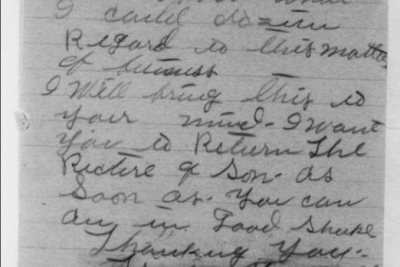 I could do = in
Regard to this matter
of buisness
I Will bring this to
your mind - I want
you to Return The
Picture of Son - as
Soon as - you can
an in Good Shape
Thanking you -